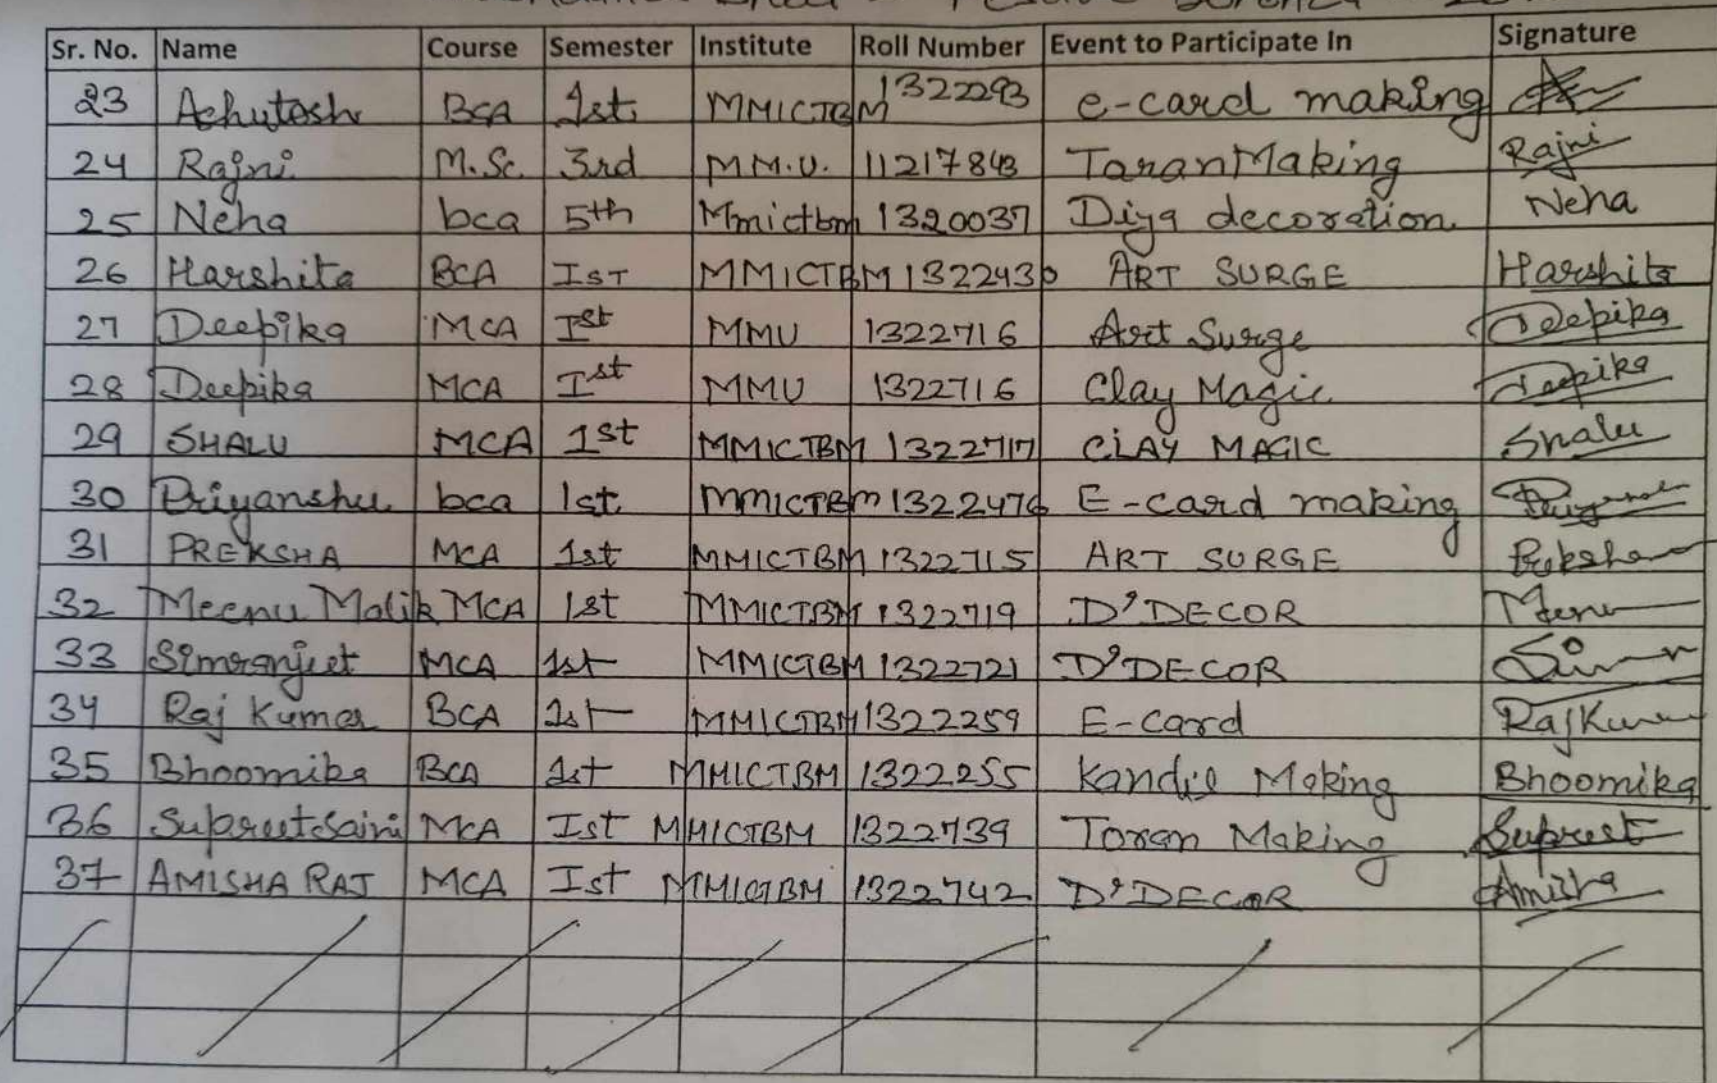 Sr. No. Name Course Semester Institute Roll Number Event to Participate In Signature
23 Ashutosh BCA 1st MMICTBM 1322293 e-card making
24 Rajni M.Sc. 3rd M.M.U. 11217843 Toran Making Rajni
25 Neha bca 5th Mmictbm 1320037 Diya decoration Neha
26 Harshita BCA Ist MMICTBM 1322430 ART SURGE Harshita
27 Deepika MCA Ist MMU 1322716 Art Surge Deepika
28 Deepika MCA Ist MMU 1322716 Clay Magic Deepika
29 SHALU MCA 1st MMICTBM 1322717 CLAY MAGIC Shalu
30 Priyanshu bca 1st MMICTBM 1322476 E-card making
31 PREKSHA MCA 1st MMICTBM 1322715 ART SURGE Preksha
32 Meenu Malik MCA 1st MMICTBM 1322719 D'DECOR Meenu
33 Simranjeet MCA 1st MMICTBM 1322721 D'DECOR
34 Raj Kumar BCA 1st MMICTBM 1322259 E-card RajKumar
35 Bhoomika BCA 1st MMICTBM 1322255 Kandil Making Bhoomika
36 Supreet Saini MCA Ist MMICTBM 1322739 Toran Making Supreet
37 AMISHA RAJ MCA Ist MMICTBM 1322742 D'DECOR Amisha